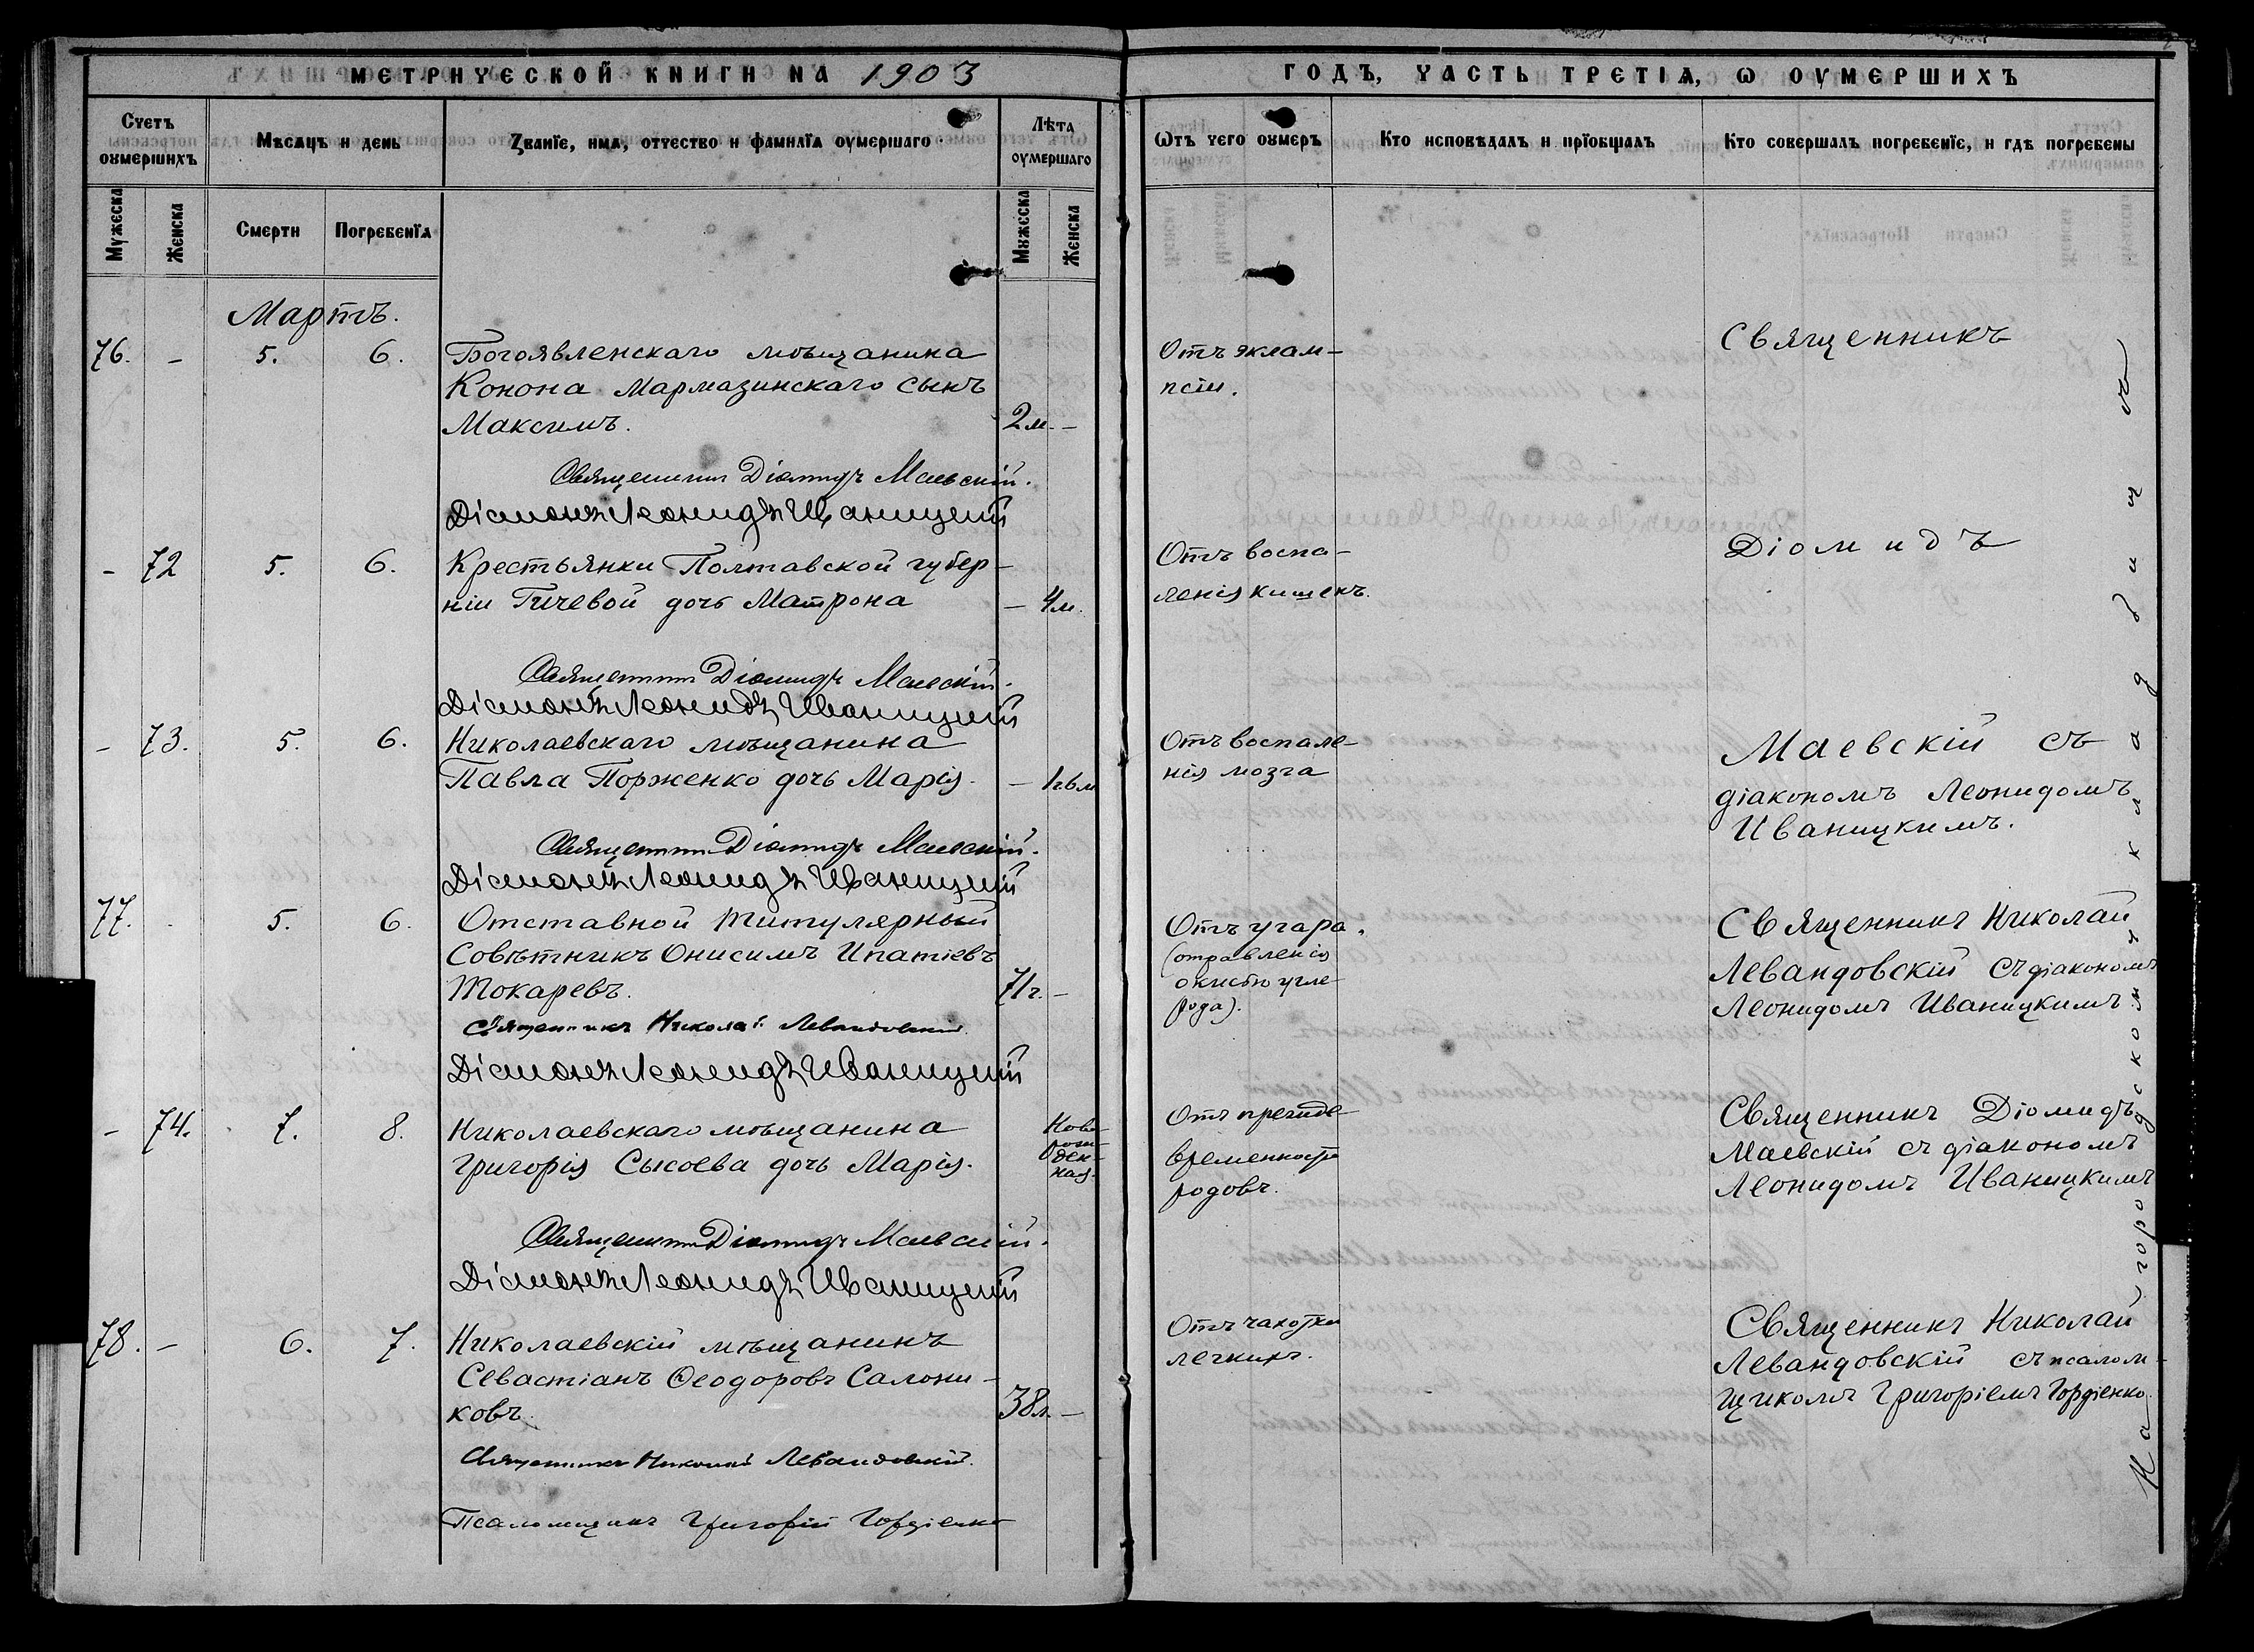 МЕТРИЧЕСКОЙ КНИГИ НА 1903
ГОДЪ, ЧАСТЬ ТРЕТІѦ, Ѡ ОУМЕРШИХЪ
Счетъ оумершихъ
Мѣсѧцъ и день
Званїе, имѧ, отчество и фамилїа оумершаго
Лѣта оумершаго
Ѿтъ чего оумеръ
Кто исповѣдалъ и прїобщалъ
Кто совершалъ погребенїе, и гдѣ погребены
Мужеска
Женска
Смерти
Погребенїѧ
Мужеска
Женска
Мартъ.
76. - 5. 6. Богоявленскаго мѣщанина
Конона Мармазинскаго сынъ
Максимъ. 2м. -
Отъ эклам-
псіи.
Священникъ
Священникъ Діомидъ Маевскій.
Діаконъ Леонидъ Иваницкій
- 72 5. 6. Крестьянки Полтавской губер-
ніи Гичевой дочь Матрона - 4м.
Отъ воспа-
ленія кишекъ.
Діомидъ
Священникъ Діомидъ Маевскій.
Діаконъ Леонидъ Иваницкій
- 73. 5. 6. Николаевскаго мѣщанина
Павла Порженко дочь Марія. - 1г6м
Отъ воспале-
нія мозга
Маевскій съ
діакономъ Леонидомъ
Иваницкимъ.
Священникъ Діомидъ Маевскій.
Діаконъ Леонидъ Иваницкій
77. - 5. 6. Отставной Титулярный
Совѣтникъ Онисимъ Ипатіевъ
Токаревъ. 71г. -
Отъ угара.
(отравленія
окисью угле-
рода).
Священникъ Николай
Левандовскій съ діакономъ
Леонидомъ Иваницкимъ
Священникъ Николай Левандовскій
Діаконъ Леонидъ Иваницкій
- 74. 7. 8. Николаевскаго мѣщанина
Григорія Сысоева дочь Марія.
Ново-
рож-
ден-
ная.
Отъ прежде-
временность
родовъ.
Священникъ Діомидъ
Маевскій съ діакономъ
Леонидомъ Иваницкимъ
Священникъ Діомидъ Маевскій.
Діаконъ Леонидъ Иваницкій
78. - 6. 7. Николаевскій мѣщанинъ
Севастіанъ Ѳеодоровъ Салони-
ковъ. 38л. -
Отъ чахотки
легкихъ.
Священникъ Николай
Левандовскій съ псалом-
щикомъ Григоріемъ Гордіенко.
Священникъ Николай Левандовскій.
Псаломщикъ Григорій Гордіенко
На городскомъ кладбищѣ